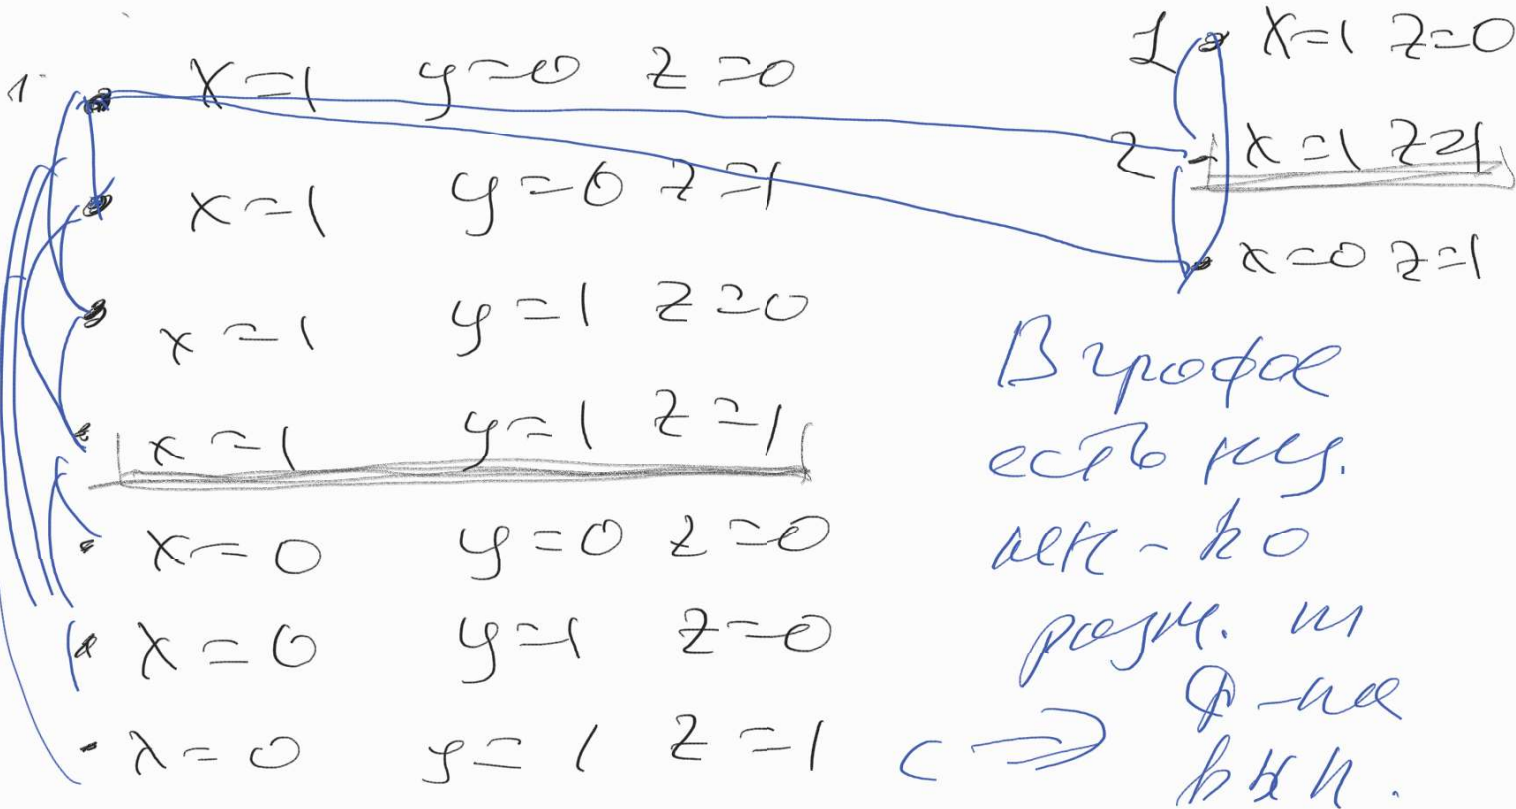 1 x=1 y=0 z=0
x=1 y=0 z=1
x=1 y=1 z=0
x=1 y=1 z=1
x=0 y=0 z=0
x=0 y=1 z=0
x=0 y=1 z=1
1 x=1 z=0
2 x=1 z=1
x=0 z=1
В графе
есть нез.
мн-во
разм. m
<=> ф-ла
вып.